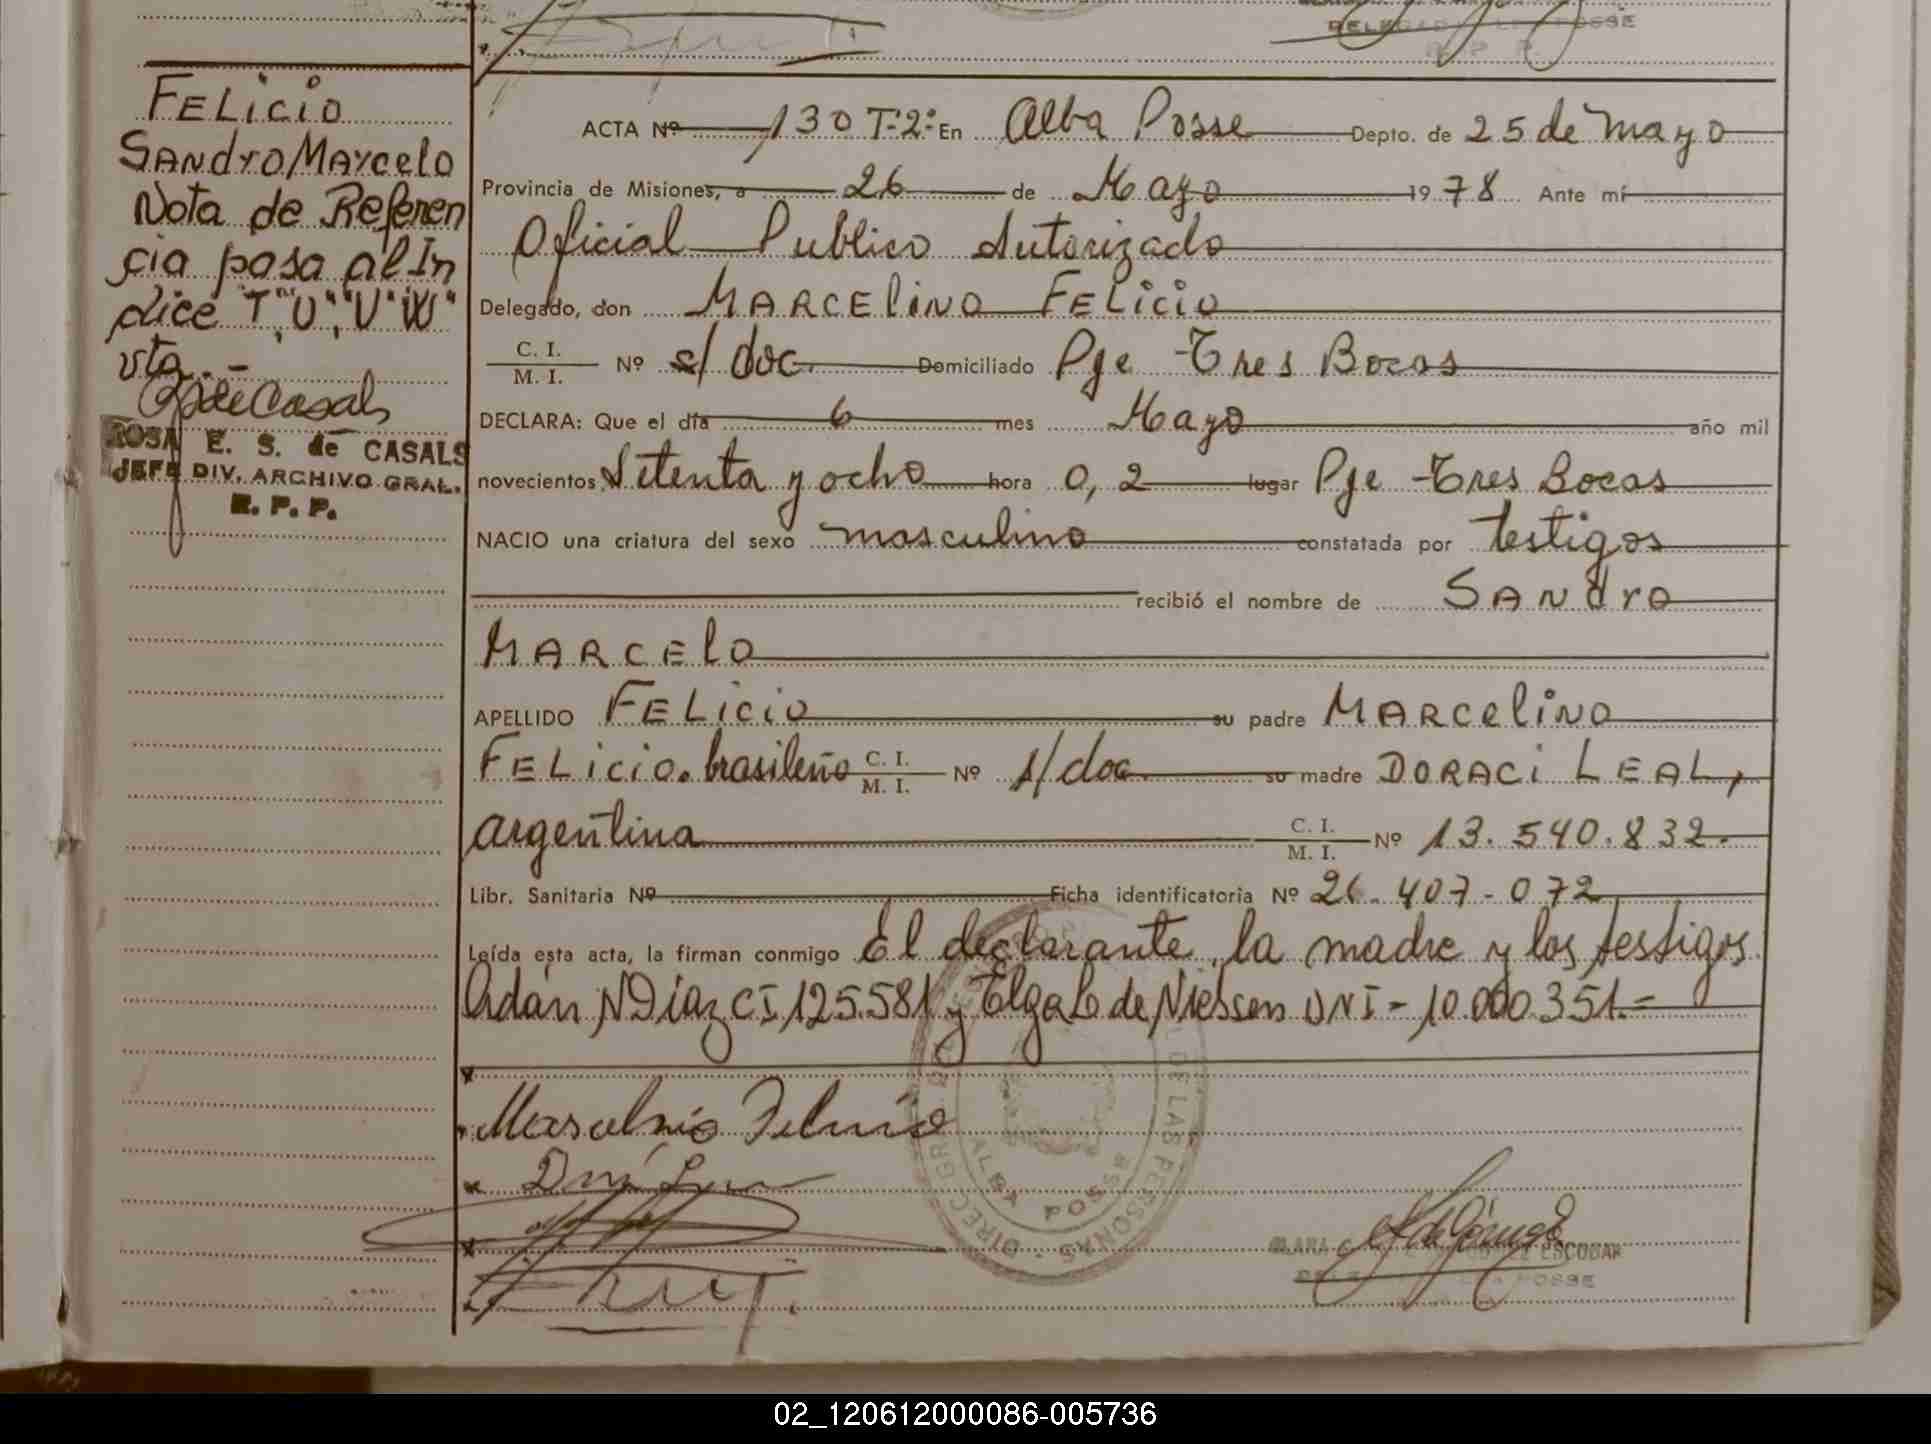 DELEGADO POSSE
R. P. P.
FELiCiO
SANdrO MArcelo
Nota de Referen
cia pasa al In
dice "T," "U", "V" "W"
vta. -
ROSA E. S. de CASALS
JEFE DIV. ARCHIVO GRAL.
R. P. P.
ACTA Nº 130 T-2º En Alba Posse Depto. de 25 de Mayo
Provincia de Misiones, a 26 de Mayo 19 78 Ante mí
Oficial Publico Autorizado
Delegado, don MARCEliNO FELiCiO
C. I. / M. I. Nº s/ doc. Domiciliado Pje Tres Bocas
DECLARA: Que el día 6 mes Mayo año mil
novecientos Setenta y ocho hora 0,2 lugar Pje Tres Bocas
NACIO una criatura del sexo masculino constatada por testigos
recibió el nombre de SANdrO
MARCElO
APELLIDO FELiCiO su padre MARCEliNO
FELiCiO. brasileño C. I. / M. I. Nº s/doc. su madre DORACi LEAL,
argentina C. I. / M. I. Nº 13.540.832.
Libr. Sanitaria Nº Ficha identificatoria Nº 26.407-072
Leída esta acta, la firman conmigo El declarante, la madre y los testigos
Adán N Diaz CI 125.581 y Elga L de Niessen DNI - 10.000.351.=
DIREC. GRAL. DE LAS PERSONAS
ALBA POSSE
ESCOBAR
POSSE
02_120612000086-005736